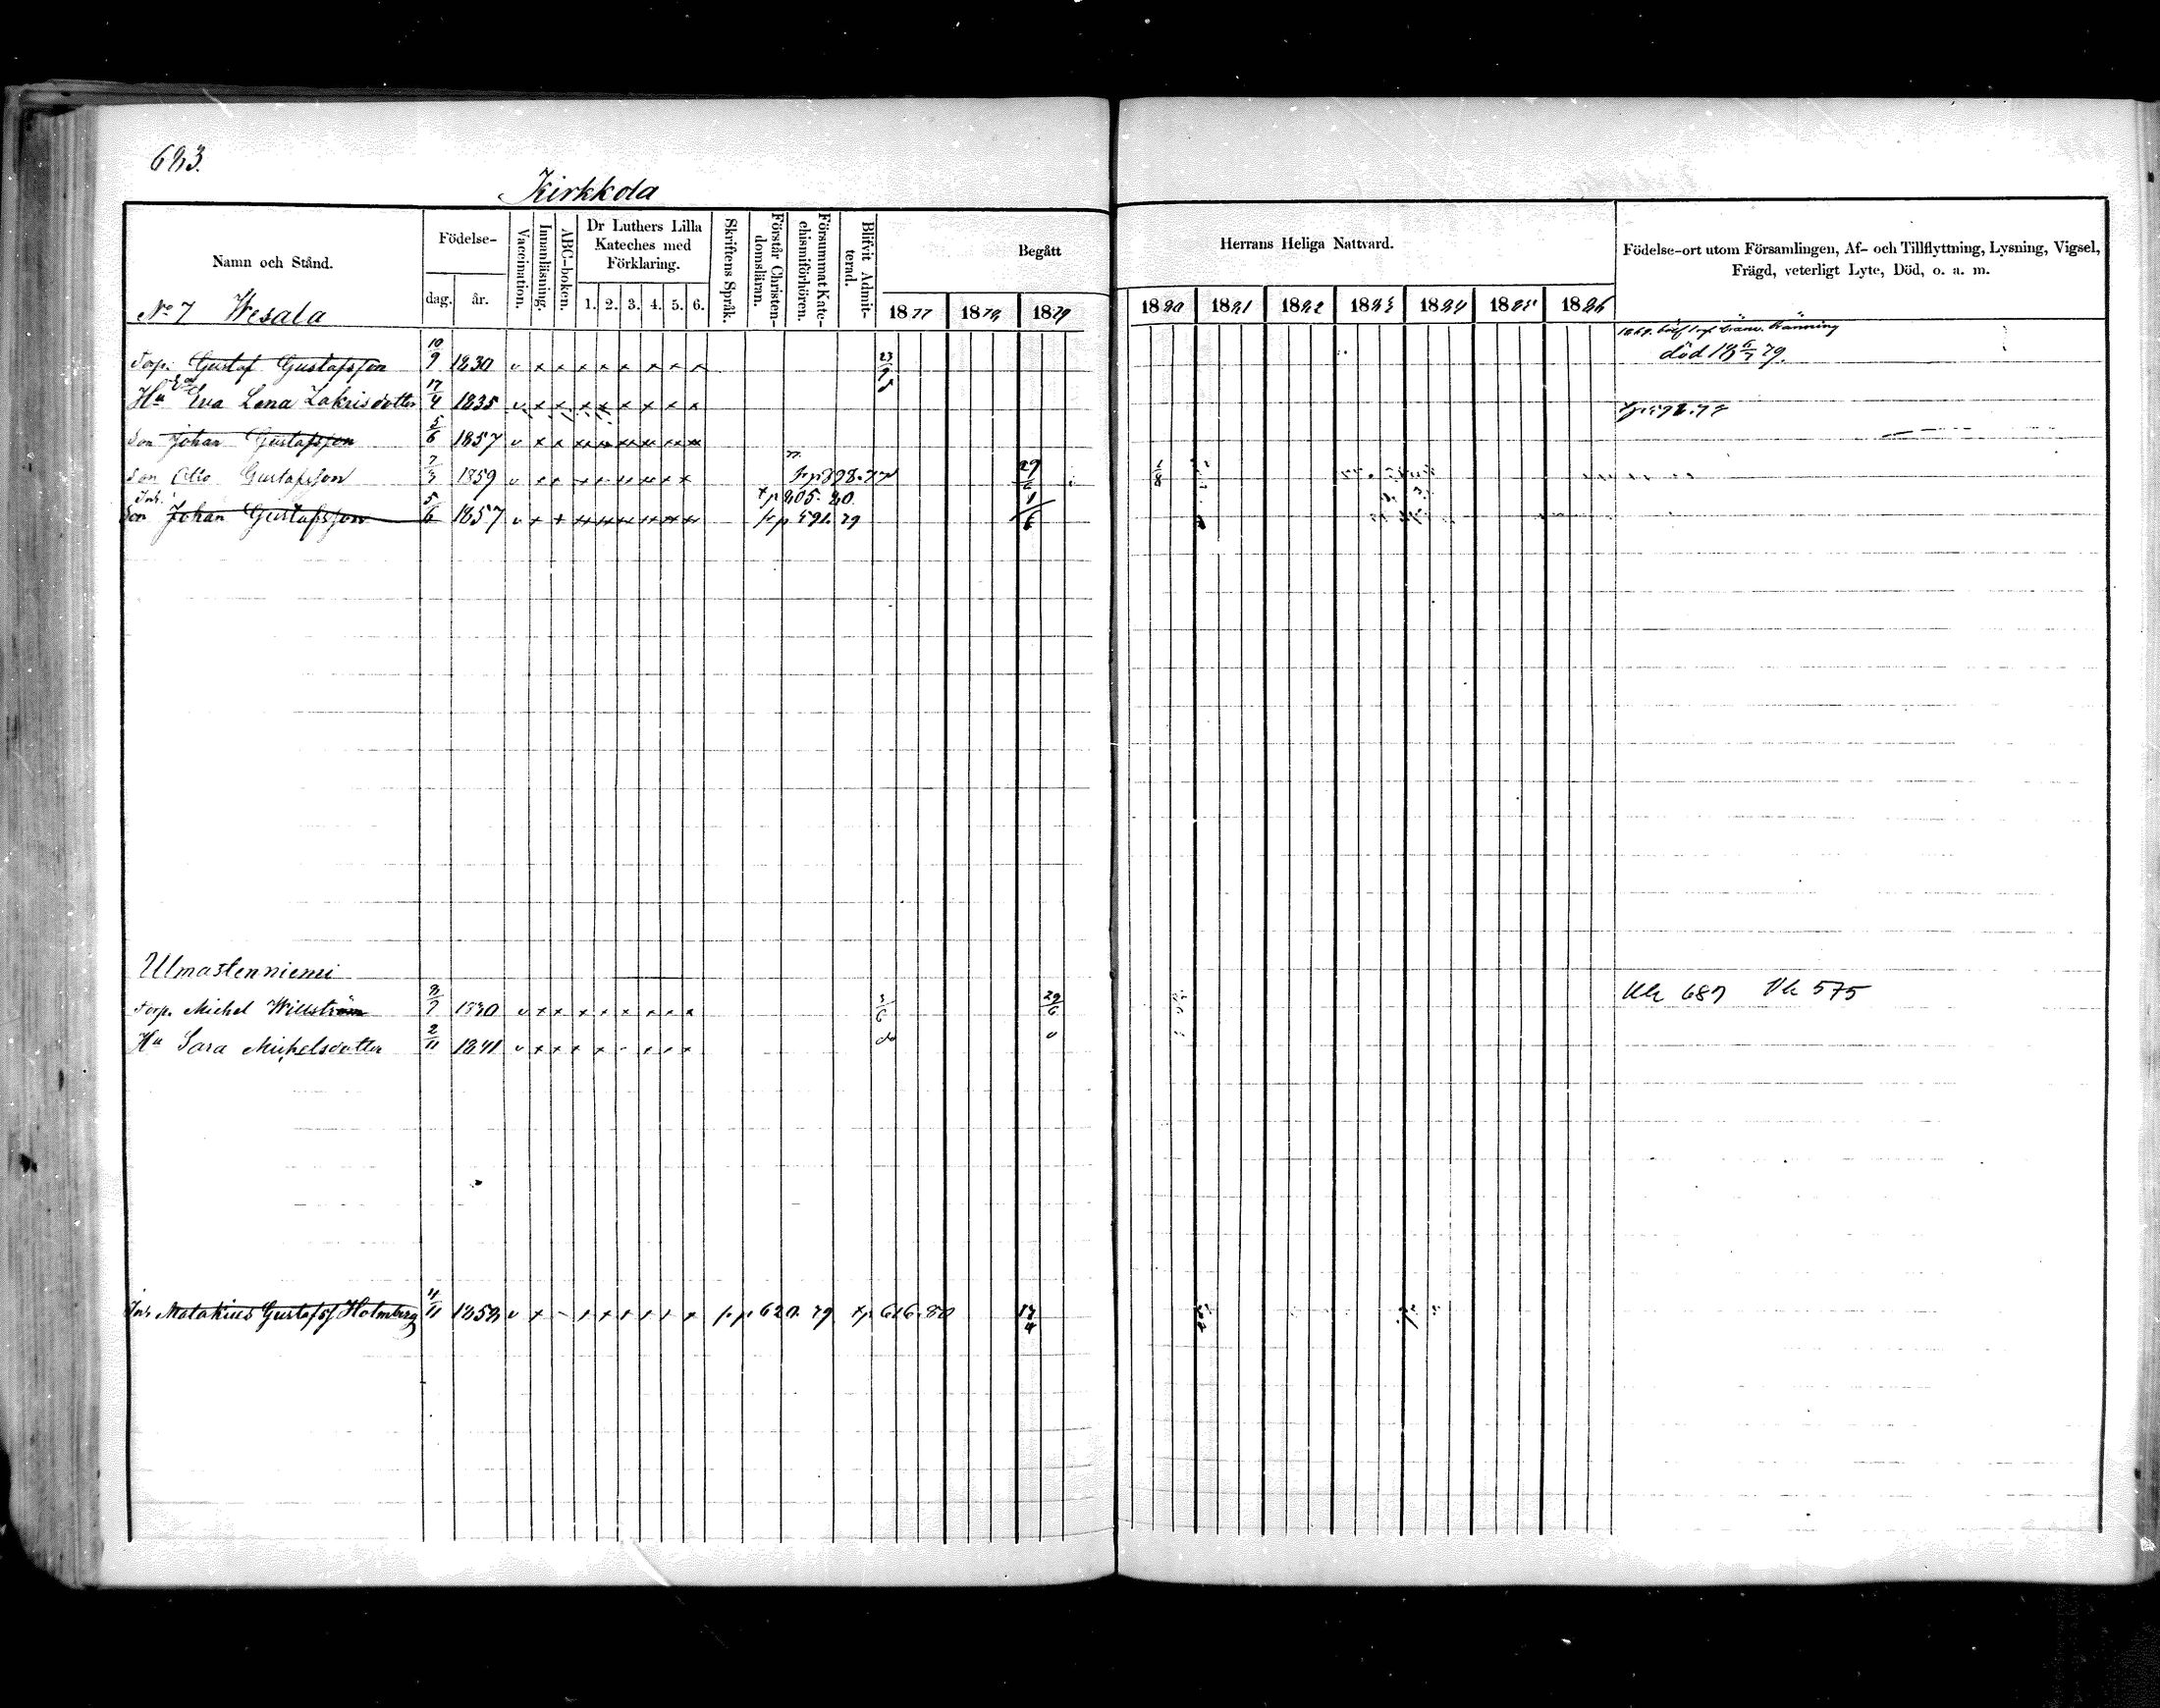 683.
Kirkkola
Namn och Stånd.
Födelse-
dag. år.
Vaccination.
Innanläsning.
ABC-boken.
Dr Luthers Lilla Kateches med Förklaring.
1. 2. 3. 4. 5. 6.
Skriftens Språk.
Förstår Christen-domsläran.
Försummat Kate-chismiförhören.
Blifvit Admit-terad.
Begått Herrans Heliga Nattvard.
1877 1878 1879 1880 1881 1882 1883 1884 1885 1886
Födelse-ort utom Församlingen, Af- och Tillflyttning, Lysning, Vigsel,
Frägd, veterligt Lyte, Död, o. a. m.
No 7 Wesala
Torp. Gustaf Gustafsson 10/9 1830 v x x x x x x x x 23/9 död 18 6/7 79.
Hu Eva Lena Zakrisdotter 17/4 1835 v x x x x x x x x
Son Johan Gustafsson 5/6 1857 v x x
Son Otto Gustafsson 7/3 1859 v x x frp 898.77 29/6 1/8
Inh. xp 805. 80.
Son Johan Gustafsson 5/6 1857 v x x frp 591. 79 1/6
Ulmastenniemi
Torp. Michel Willström 8/7 1830 v x x x x x x x x 3/6 29/6 Uk 687 Vk 575
Hu Sara Michelsdotter 2/11 1841 v x x x x x x x
Inh. Gustafss Holmberg 4/11 1858 v x frp 620. 79 xp 616. 80 13/4